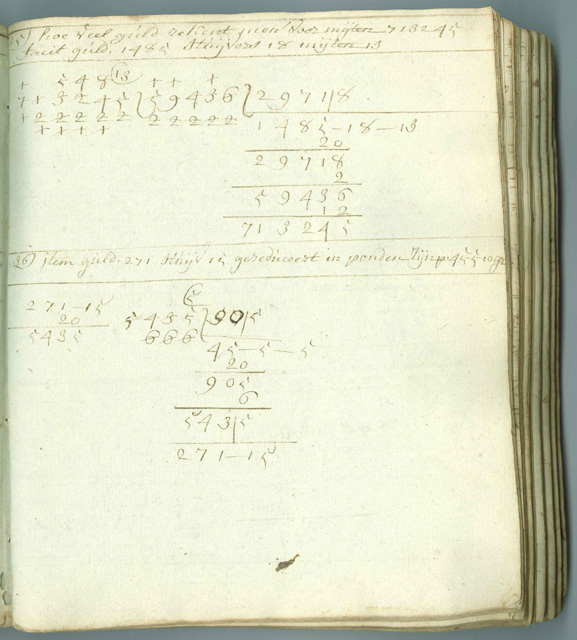 35) hoe veel guld rekent men voor mijten 713245
facit guld. 1485 stuyvers 18 mijten 13
+ 5 4 8 (13 + + +
7 + 3 2 4 5 ) 5 9 4 3 6 ) 2 9 7 1|8
+ 2 2 2 2 2 2 2 2 2 2
+ + + +
1 4 8 5 - 18 - 13
20
2 9 7 1 8
2
5 9 4 3 6
1 2
71 3 2 4 5
36) item guld. 271 stuy 15 gereduceert in ponden zijn p. 45 5
2 7 1 - 15
20
5 4 3 5
(5
5 4 3 5 ) 90|5
6 6 6
45 - 5 - 5
20
9 0 5
6
5 4 3|5
2 7 1 - 15